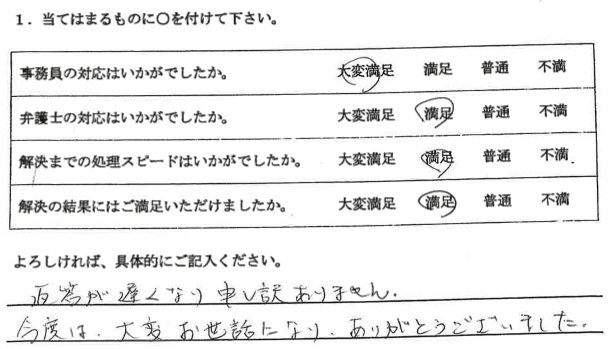 1．当てはまるものに○を付けて下さい。
事務員の対応はいかがでしたか。 大変満足 満足 普通 不満
弁護士の対応はいかがでしたか。 大変満足 満足 普通 不満
解決までの処理スピードはいかがでしたか。 大変満足 満足 普通 不満
解決の結果にはご満足いただけましたか。 大変満足 満足 普通 不満
よろしければ、具体的にご記入ください。
返答が遅くなり申し訳ありません.
今度は、大変お世話になり、ありがとうございました.